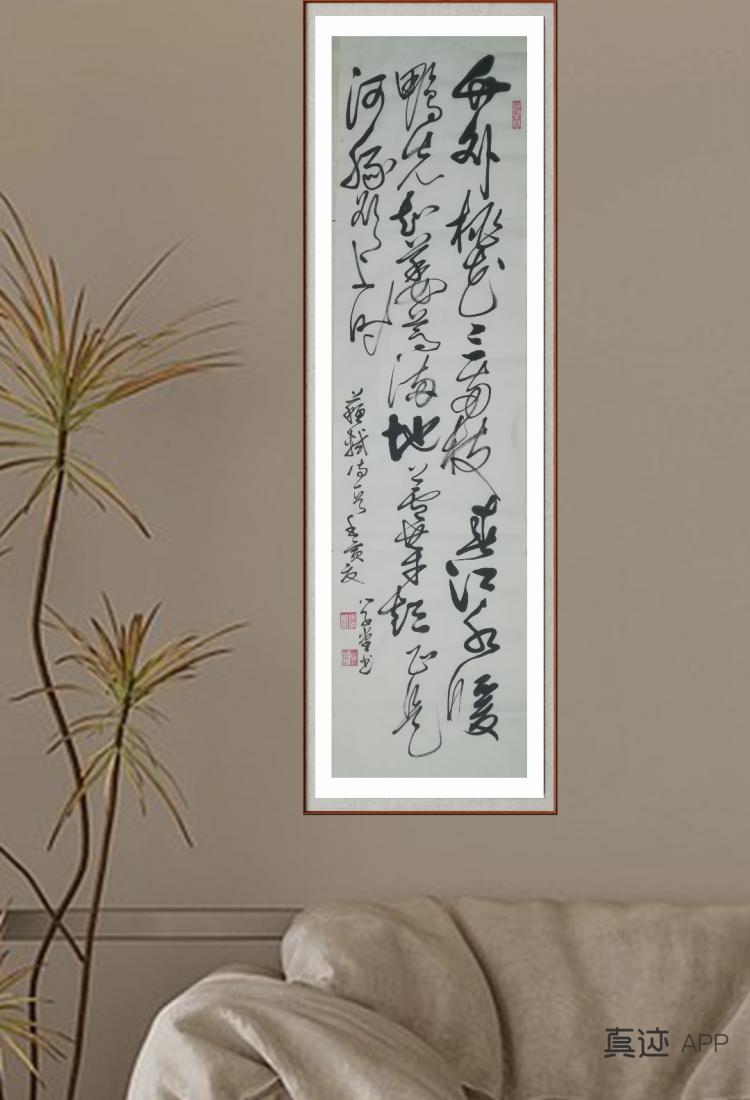 竹外桃花三两枝春江水暖
鴨先知蔞蒿满地蘆芽短正是
河豚欲上时
蘇軾诗 壬寅夏
堂书
真迹 APP